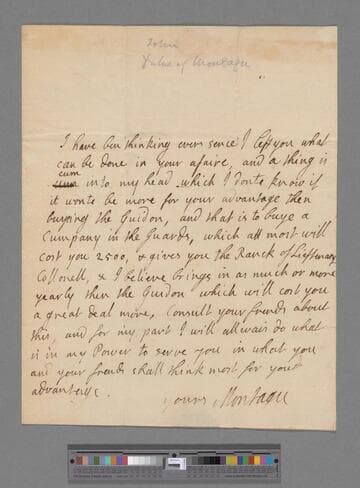 John
Duke of Montagu
I have bin thinking ever sence I left you what
can be done in your afaire, and a thing is
cum
into my head which I donte know if
it wonte be more for your advantage then
buying the Guidon, and that is to buye a
Cumpany in the Guards, which att most will
cost you 2500, & gives you the Ranck of Lieftenant
Collonell, & I believe brings in as much or more
yearly then the Guidon which will cost you
a great deal more, Consult your frends about
this, and for my part I will allwais do what
is in my Power to serve you in what you
and your frends shall think most for your
advantage.
yours Montagu